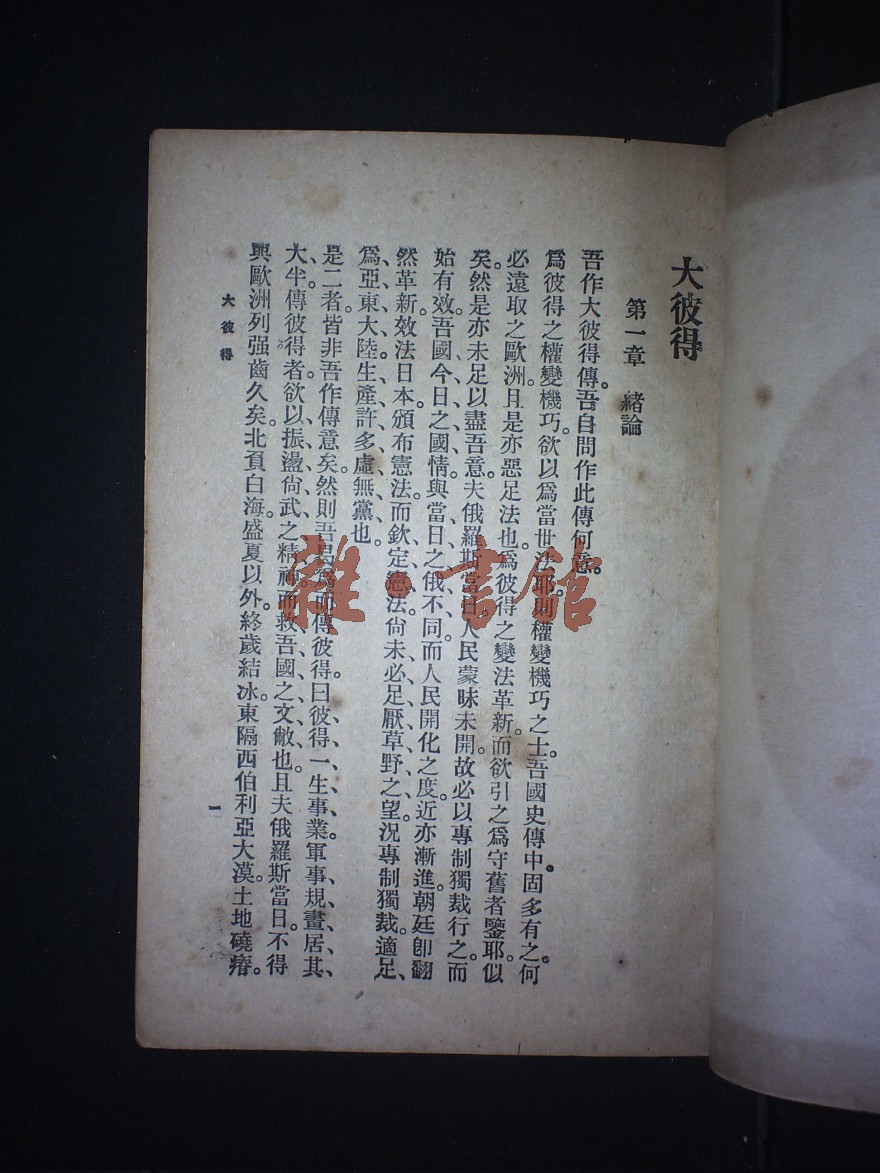 大彼得
第一章　緒論
吾作大彼得傳。吾自問作此傳何意。
爲彼得之權變機巧。欲以爲當世法耶。則權變機巧之士。吾國史傳中固多有之。何
必遠取之歐洲。且是亦惡足法也。爲彼得之變法革新。而欲引之爲守舊者鑒耶。似
矣。然是亦未足以盡吾意。夫俄羅斯當日。人民蒙昧未開。故必以專制獨裁行之而
始有效。吾國今日之國情。與當日之俄不同。而人民開化之度。近亦漸進。朝廷卽翻
然革新。效法日本。頒布憲法。而欽定憲法。尙未必足厭草野之望。況專制獨裁。適足、
爲、亞東大陸生產許多虛無黨也。
是二者。皆非吾作傳意矣。然則吾曷爲而傳彼得。曰彼得一生事業。軍事規畫居其、
大半、傳彼得者。欲以振盪尙武之精神。而救吾國之文敝也。且夫俄羅斯當日。不得
與歐洲列强齒久矣。北頁白海。盛夏以外。終歲結冰。東隔西伯利亞大漠。土地磽瘠。
大彼得
一
雜·書館